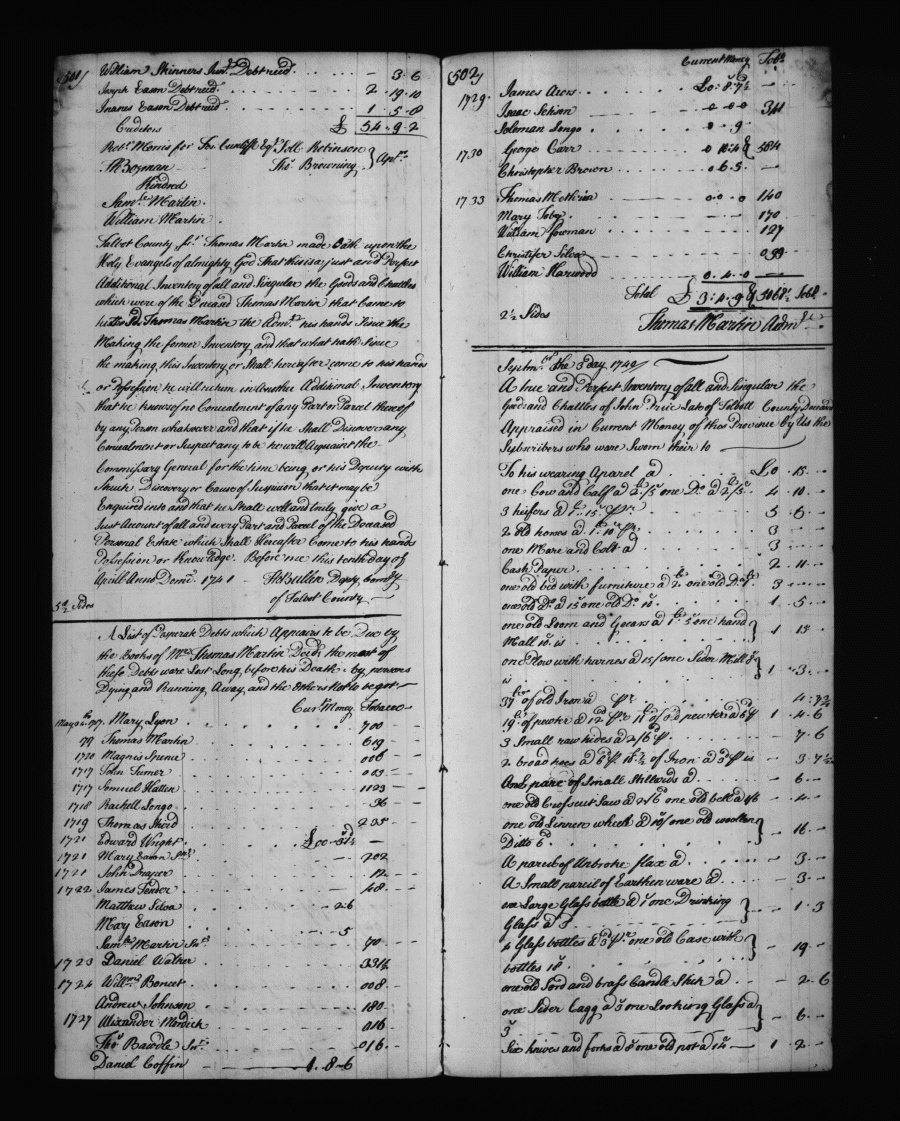 501)
William Skinners Junr. Debt neid. . . . . . - 3.6
Joseph Eason Debt neid. . . . . . 2.19.10
Inanes Eason Debt neid. . . . . . 1.5.8
Creditors £ 54.9.2
Robt. Morris for Fos: Cunliffe Esqr. Jos. Robinson
Tho. Browning } Apprs.
Kindred
Samll. Martin.
William Martin.
Talbot County, ss. Thomas Martin made Oath upon the
Holy Evangels of almighty God That this is a just and Perfect
Additional Inventory of all and Singular the Goods and Chattles
which were of the Deceasd Thomas Martin that Came to
Thomas Martin the Admr. his hands Since the
Making the former Inventory and that what hath Since
the making this Inventory or Shall hereafter come to his hands
or Posession he will return in Another Additional Inventory
that he knows of no Concealment of any Part or Parcel thereof
by any Person whatsoever and that if he Shall Discover any
Concealment or Suspect any to be he will Acquaint the
Commissary General for the time being, or his Deputy with
Such Discovery or Cause of Suspicion that it may be
Enquired into and that he Shall well and truly give a
Just Account of all and every Part and Parcel of the Deceased
Personal Estate which Shall Hereafter Come to his hands
Posession or Knowledge. Before me this tenth day of
Aprill Anno Domi. 1741 Deputy Comry
of Talbot County
5½ Sides
A List of Desperate Debts which Appears to be Due by
the Books of Mr. Thomas Martin Decd. the most of
these Debts were Lost Long before his Death by persons
Dying and Running Away, and the Others Not to be got
Curt. Money. Tobacco
Mary Lyon . . . . 700 -
Thomas Martin . . . . 619 -
1710 Magnis Spence . . . . 006 -
1717 John Turner . . . . 003 -
1717 Samuel Hatton . . . . 1123 -
1718 Rachell Longo . . . . 36 -
1719 Thomas Skeid . . . . 235 -
1721 Edward Wright . . . .
1721 Mary Eason . . . . 202
1721 John Draper . . . . 12 -
1722 James Tender . . . . 48 -
Matthew Silva . . . . 2.6
Mary Eason . . . . 5
Samll. Martin . . . . 70 -
1723 Daniel Walker . . . . 331½
1724 Willm. Boncet . . . . 008 -
Andrew Johnson . . . . 180 -
1727 Alexander Mardick . . . . 016 -
Thos. Bawdle Senr. . . . . 016 -
Daniel Coffin . . . . 1.8.6
502)
Current Money Tobo.
1729. James Acers . . . . £0:8:7½ -
Isaac Jehson . . . . 0.0.0 311
Soloman Longo . . . . 0.9.
1730 George Carr . . . . 0 10:4 & 584
Christopher Brown . . . . 0.6.5. -
1733 Thomas Methrin . . . . 0.0.0 140
Mary Toby . . . . 170
William fowman . . . . 127
Christifer Silva . . . . 099
William Harwood . . . . 0.4.0 -
Total £ 3:4.9 & 5068½ Tobo.
2½ Sides
Thomas Martin Admr.
Septmr. the 3 day 1740
A true and Perfect Inventory of all and Singular the
Good: and Chattles of John Price Late of Talbott County Deceased
Appraised in Current Money of this Province by Us the
Subscribers who were Sworn their to
To his wearing Aparel a . . . £0.15.-
one Cow and Calf a 2£/5 one Do. a 2£/5s. . 4.10.-
3 heifers a 1£.15s. pr. . . . 5 5.-
2 old horses a 1£.10s pr. . . . 3
one Mare and Colt a . . . 3
Cash Paper . . . 2.11.-
one old bed with furniture a 2£ one old Do. 1£. 3
one old Do. a 15s one old Do. 10s. . . 1.5.-
one old Loom and Gears a 1£.5s one hand
Mall 10s. is } 1 15 -
one Plow with harness a 15/ one Sider Mill 8s
is } 1.3.-
37lb of old Iron a pr. . . . 4:7½
19lb. of pewter a 12d pr. 11lb of old pewter a 6d p 1.4.6
3 Small raw hides a 2/6 p. . . . 7.6
2 broad hoes a of Iron a 3d p is - 3.7½
One pare of Small Stillards a . . . 6.-
one old Crosscut Saw a 2/6 one old bell a 1/6 - 4.-
one old Linnen wheell a 10/ one old woollen
Ditto 6s } - 16.-
A parcil of Unbroke flax a . . . 3.-
A Small parcil of Earthen ware a . . . 3.-
one Large Glass bottle a 1s one Drinking
Glass a 3d } - 1.3
4 Glass bottles a 3d pr. one old Case with
bottles 18s. } - 19 -
one old Sord and brass Candle Stick a - 2.6
one Sider Cagg a 3s one Looking Glass a
3s } - 6.-
Six knives and forks a 8s one old pot a 14s - 1.2.-